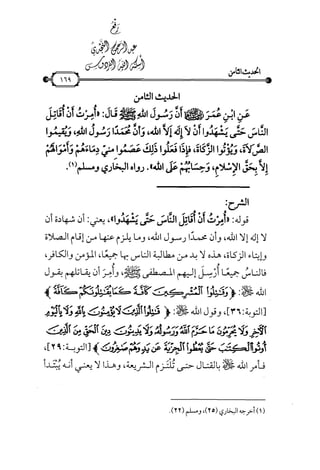 رفع
عبد الرحمن النجدي
أسكنه الله الفردوس
الحديث الثامن
١٦٩
الحديث الثامن
عَنِ ابْنِ عُمَرَ أَنَّ رَسُولَ اللهِ ﷺ قَالَ: «أُمِرْتُ أَنْ أُقَاتِلَ
النَّاسَ حَتَّى يَشْهَدُوا أَنْ لَا إِلَهَ إِلَّا الله، وَأَنَّ مُحَمَّدًا رَسُولُ اللهِ، وَيُقِيمُوا
الصَّلَاةَ، وَيُؤْتُوا الزَّكَاةَ، فَإِذَا فَعَلُوا ذَلِكَ عَصَمُوا مِنِّي دِمَاءَهُمْ وَأَمْوَالَهُمْ
إِلَّا بِحَقِّ الْإِسْلَامِ، وَحِسَابُهُمْ عَلَى اللهِ». رواه البخاري ومسلم(١).
الشرح:
قوله: «أُمِرْتُ أَنْ أُقَاتِلَ النَّاسَ حَتَّى يَشْهَدُوا»، يعني: أن شهادة أن
لا إله إلا الله، وأن محمدًا رسول الله، وما يلزم عنها من إقام الصلاة
وإيتاء الزكاة، هذه لا بد من مطالبة الناس بها جميعًا، المؤمن والكافر،
فالناسُ جميعًا أُرسِلَ إليهم المصطفى ﷺ، وأُمِرَ أن يقاتلهم بقول
الله: ﴿وَقَٰتِلُوا۟ ٱلْمُشْرِكِينَ كَآفَّةً كَمَا يُقَٰتِلُونَكُمْ كَآفَّةً﴾
[التوبة: ٣٦]، وقول الله: ﴿قَٰتِلُوا۟ ٱلَّذِينَ لَا يُؤْمِنُونَ بِٱللَّهِ وَلَا بِٱلْيَوْمِ
ٱلْـَٔاخِرِ وَلَا يُحَرِّمُونَ مَا حَرَّمَ ٱللَّهُ وَرَسُولُهُۥ وَلَا يَدِينُونَ دِينَ ٱلْحَقِّ مِنَ ٱلَّذِينَ
أُوتُوا۟ ٱلْكِتَٰبَ حَتَّىٰ يُعْطُوا۟ ٱلْجِزْيَةَ عَن يَدٍ وَهُمْ صَٰغِرُونَ﴾ [التوبة: ٢٩]،
فأمر الله بالقتال حتى تُلتَزم الشريعة، وهذا لا يعني أنه يُبْتَدأ
(١) أخرجه البخاري (٢٥)، ومسلم (٢٢).